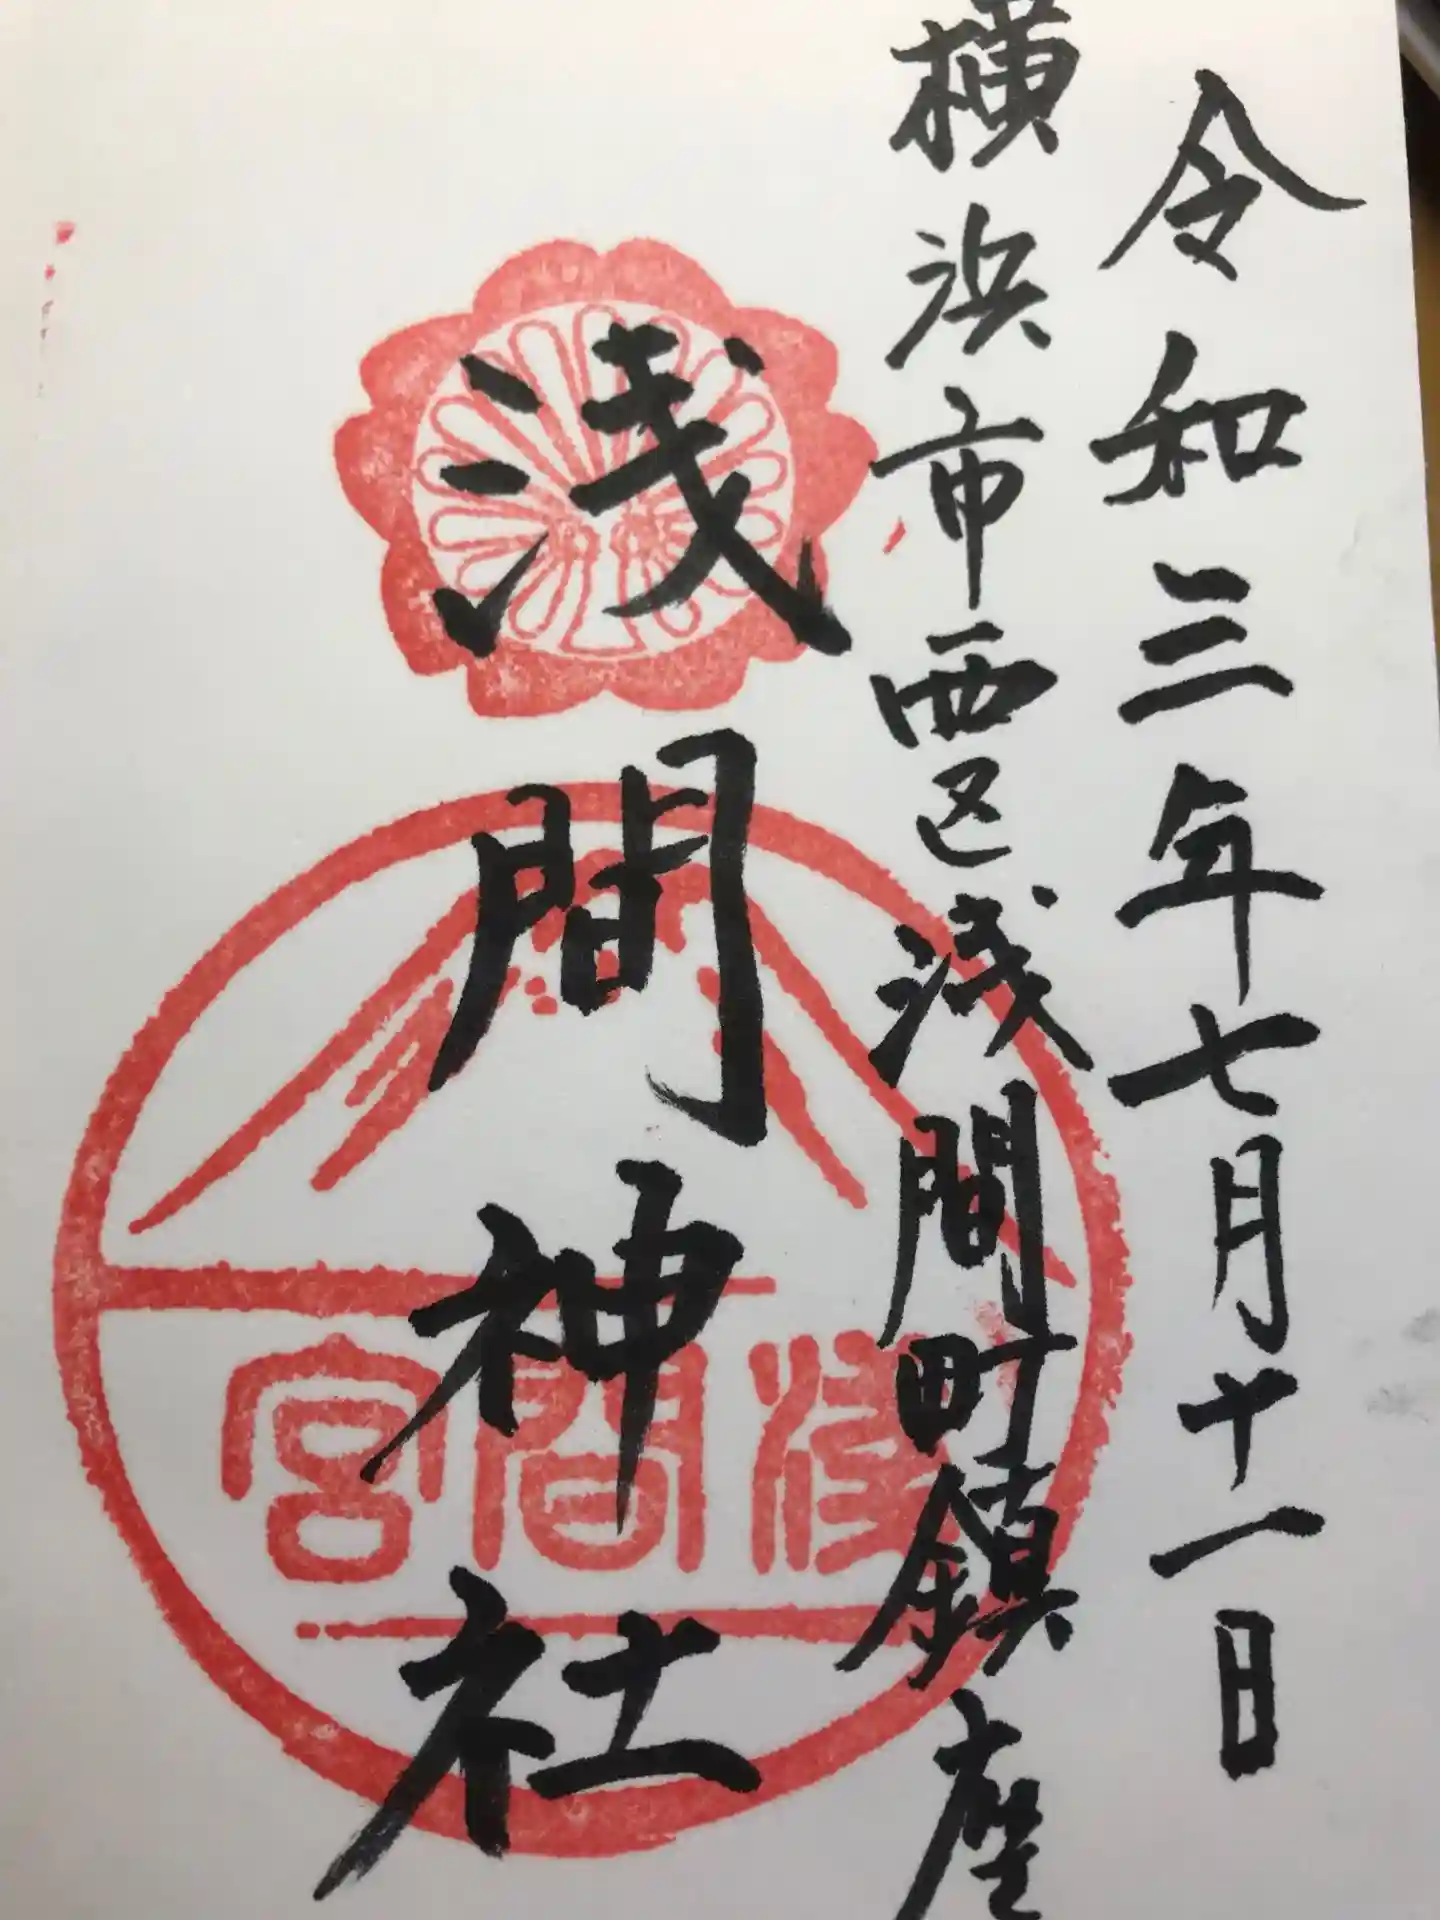 令和三年七月十一日
横浜市西区浅間町鎮座
浅間神社
浅間宮